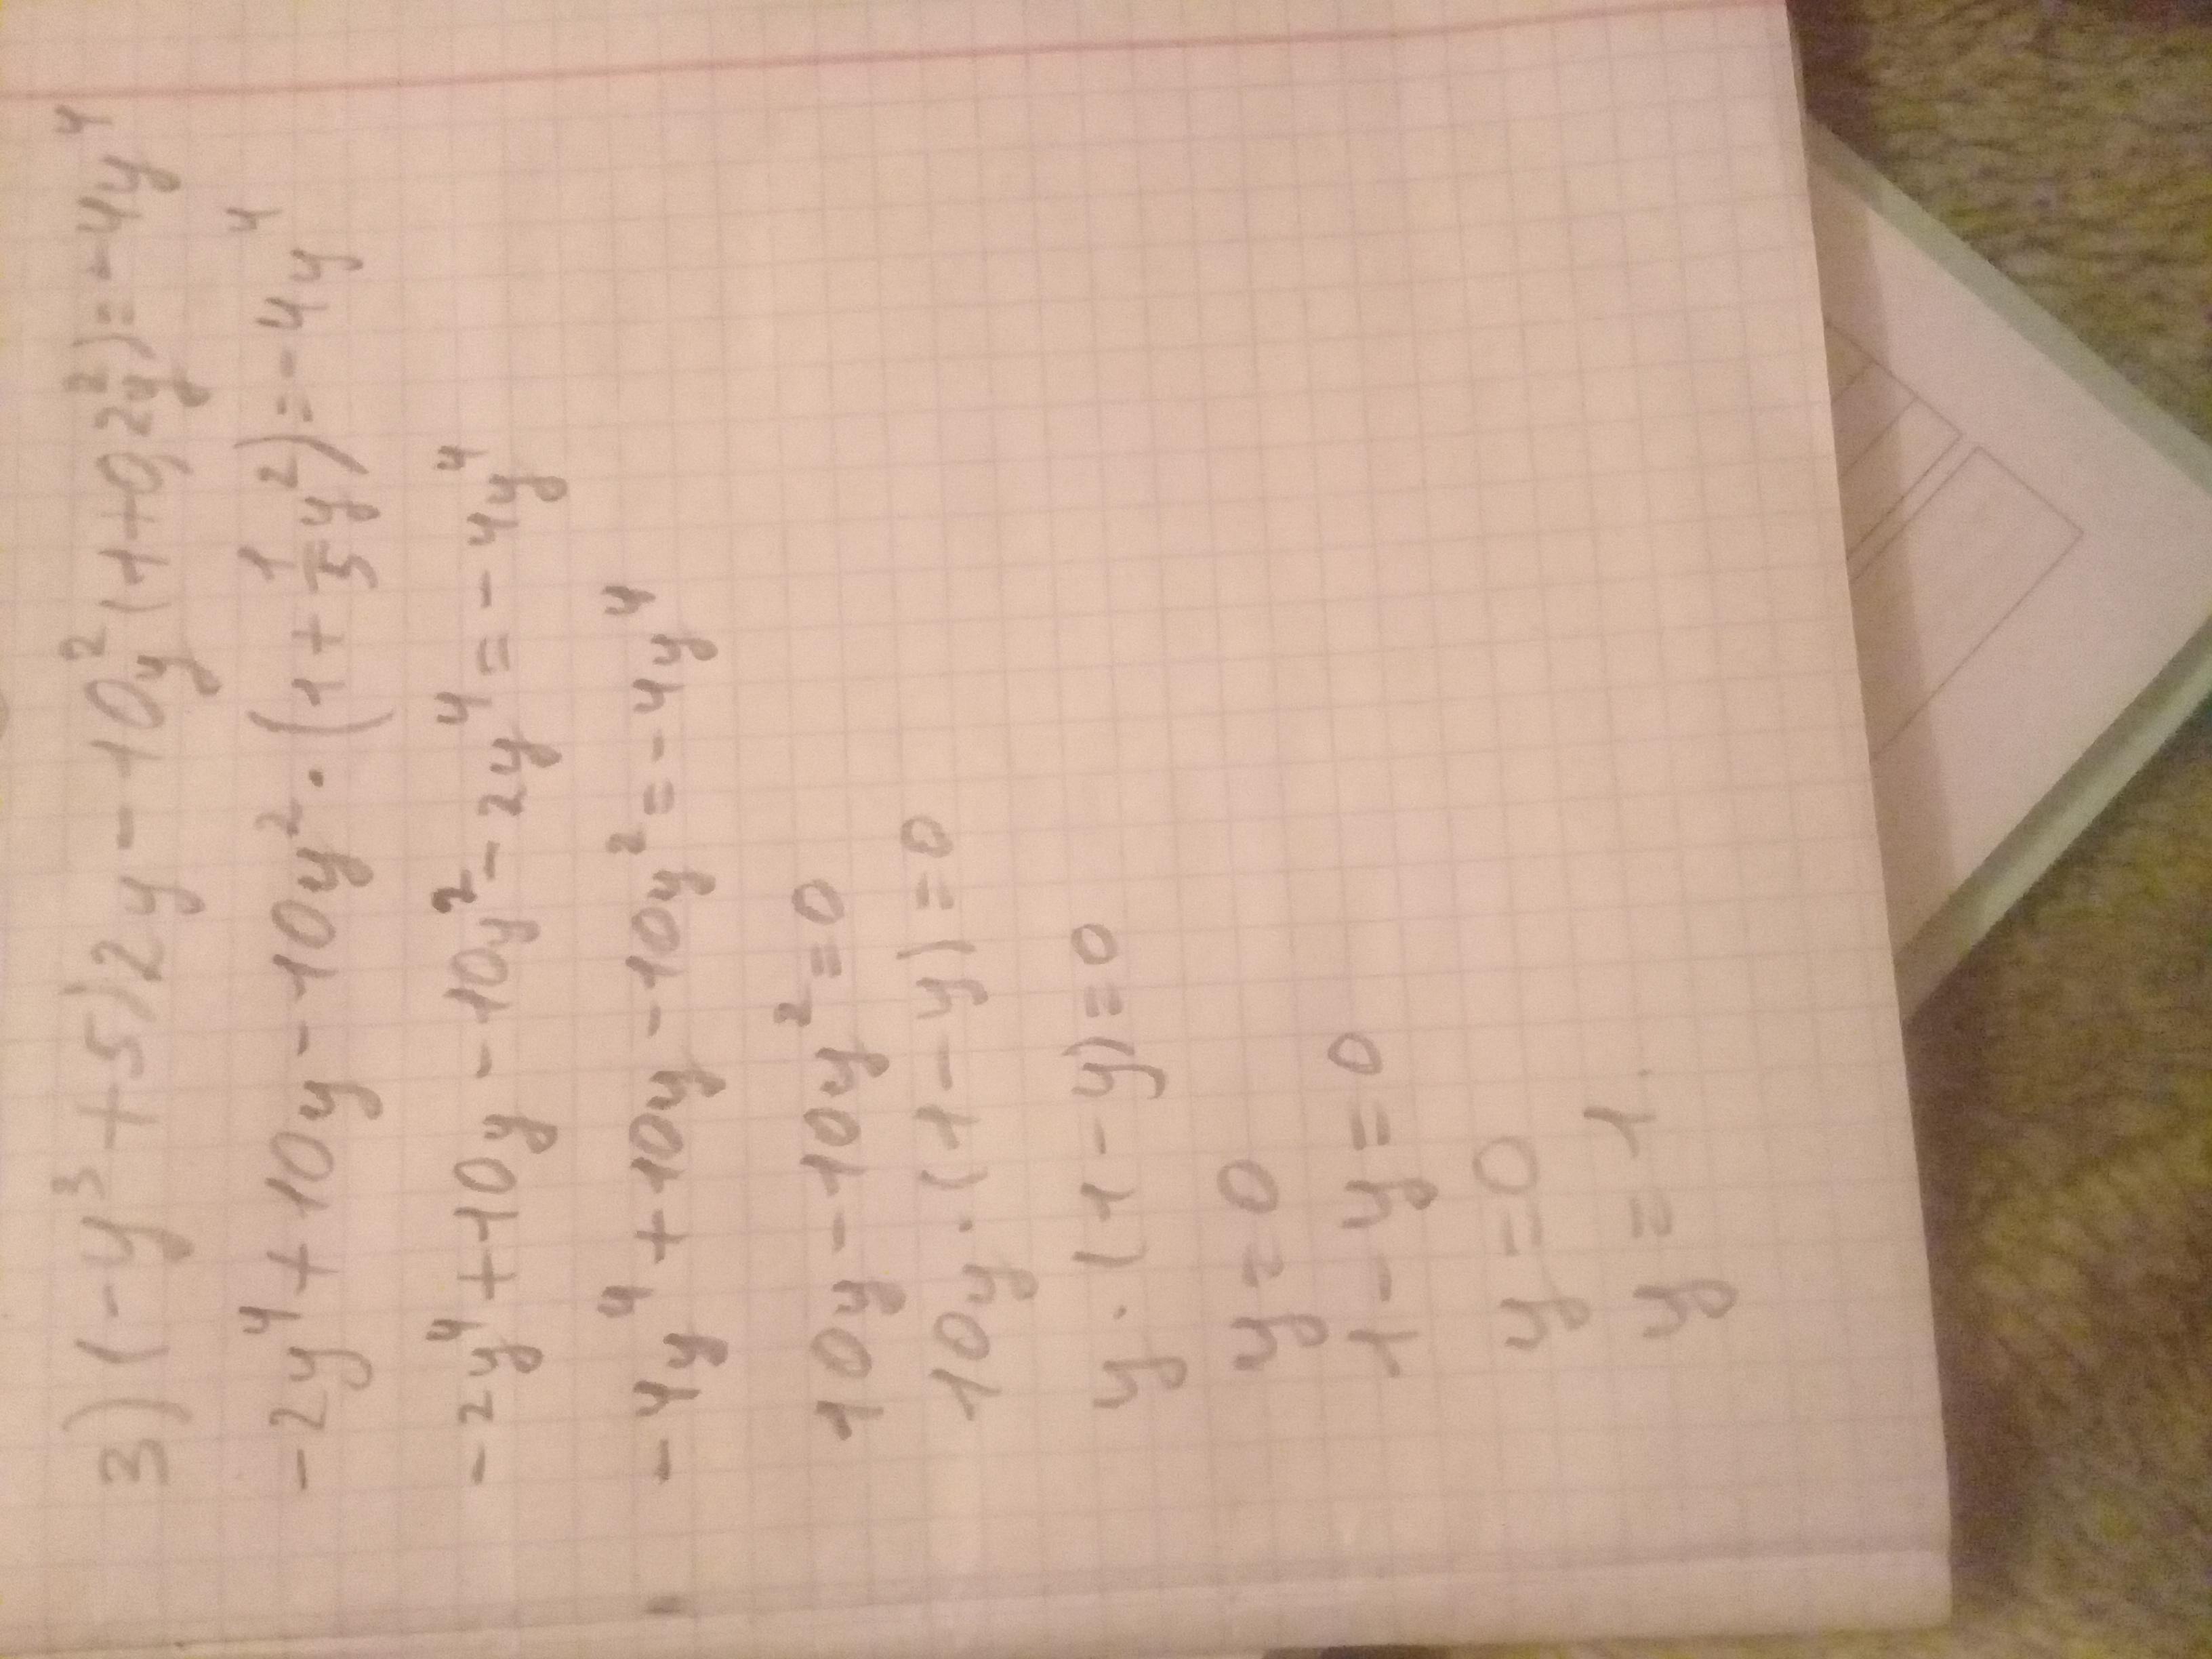 3) (-y³+5)2y-10y²(1+0,2y²)=-4y⁴
-2y⁴+10y-10y²·(1+1/5y²)=-4y⁴
-2y⁴+10y-10y²-2y⁴=-4y⁴
-4y⁴+10y-10y²=-4y⁴
10y-10y²=0
10y·(1-y)=0
y·(1-y)=0
y=0
1-y=0
y=0
y=1